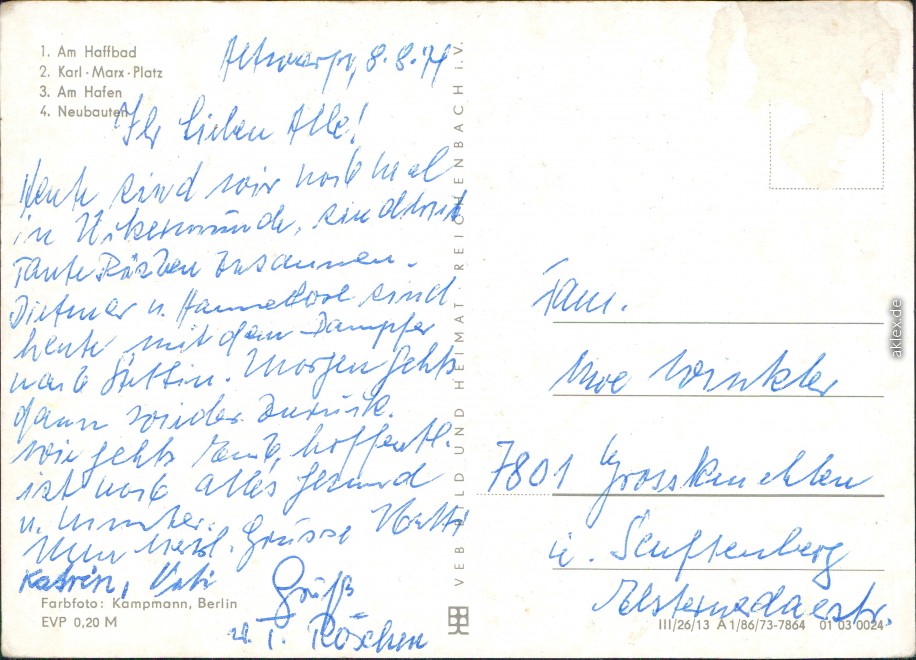 1. Am Haffbad
2. Karl-Marx-Platz
3. Am Hafen
4. Neubauten
Altwarp, 8.8.74
Ihr lieben Alle!
Heute sind wir noch mal
in Ükermünde, sind mit
Tante Röschen zusammen.
Dietmar u. Hannelore sind
heute mit dem Dampfer
nach Stettin. Morgen gehts
dann wieder zurück.
Wie gehts Euch, hoffentl.
ist noch alles gesund
u. munter.
Nun herzl. Grüsse
Katrin,
Gruß
u. T. Röschen
Farbfoto: Kampmann, Berlin
EVP 0,20 M
VEB BILD UND HEIMAT REICHENBACH i. V.
Fam.
Uwe Winkler
7801 Grosskmehlen
ü. Senftenberg
Elsterwedaerstr.
III/26/13 A 1/86/73-7864 01 03 0024
aklex.de